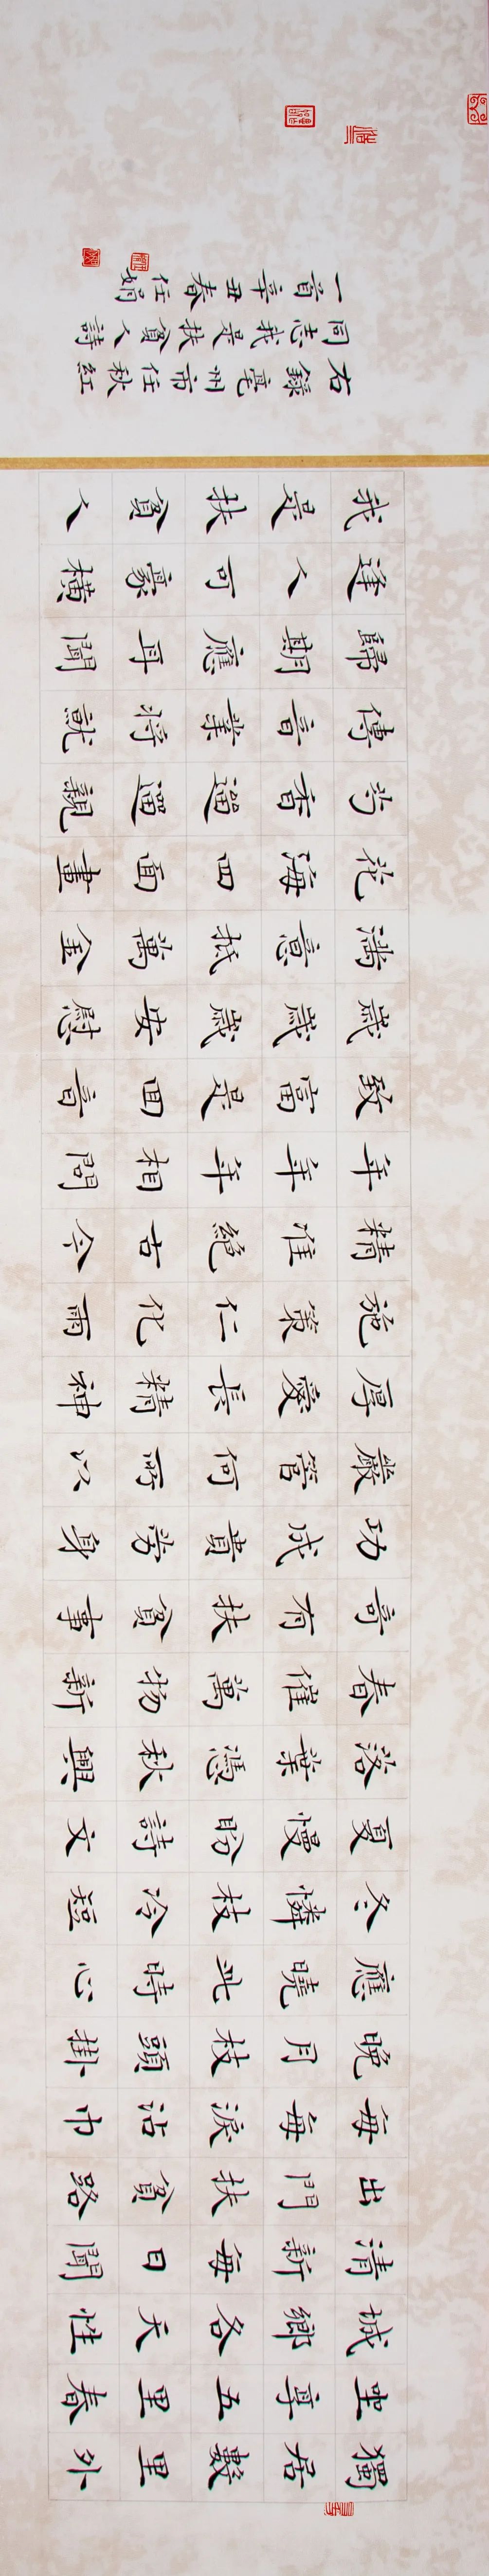 獨居數里外
坐享五里春
城鄉各天性
清新每日聞
出門扶貧路
每每淚沾巾
晚月枝頭掛
應曉此時心
冬憐枝冷短
夏慢盼詩文
落葉憑秋興
春催萬物新
奇有扶貧事
功成貴勞身
嚴管何所以
厚愛長精神
施策仁化雨
精准絕古今
年年年相問
致富是回音
歲歲歲安慰
滿意抵萬金
花海四面畫
芳香遛遛親
傳音業將就
歸期應耳聞
逢人可豪橫
我是扶貧人
右錄亳州市任秋紅
同志我是扶貧人詩
一首辛丑春任娟